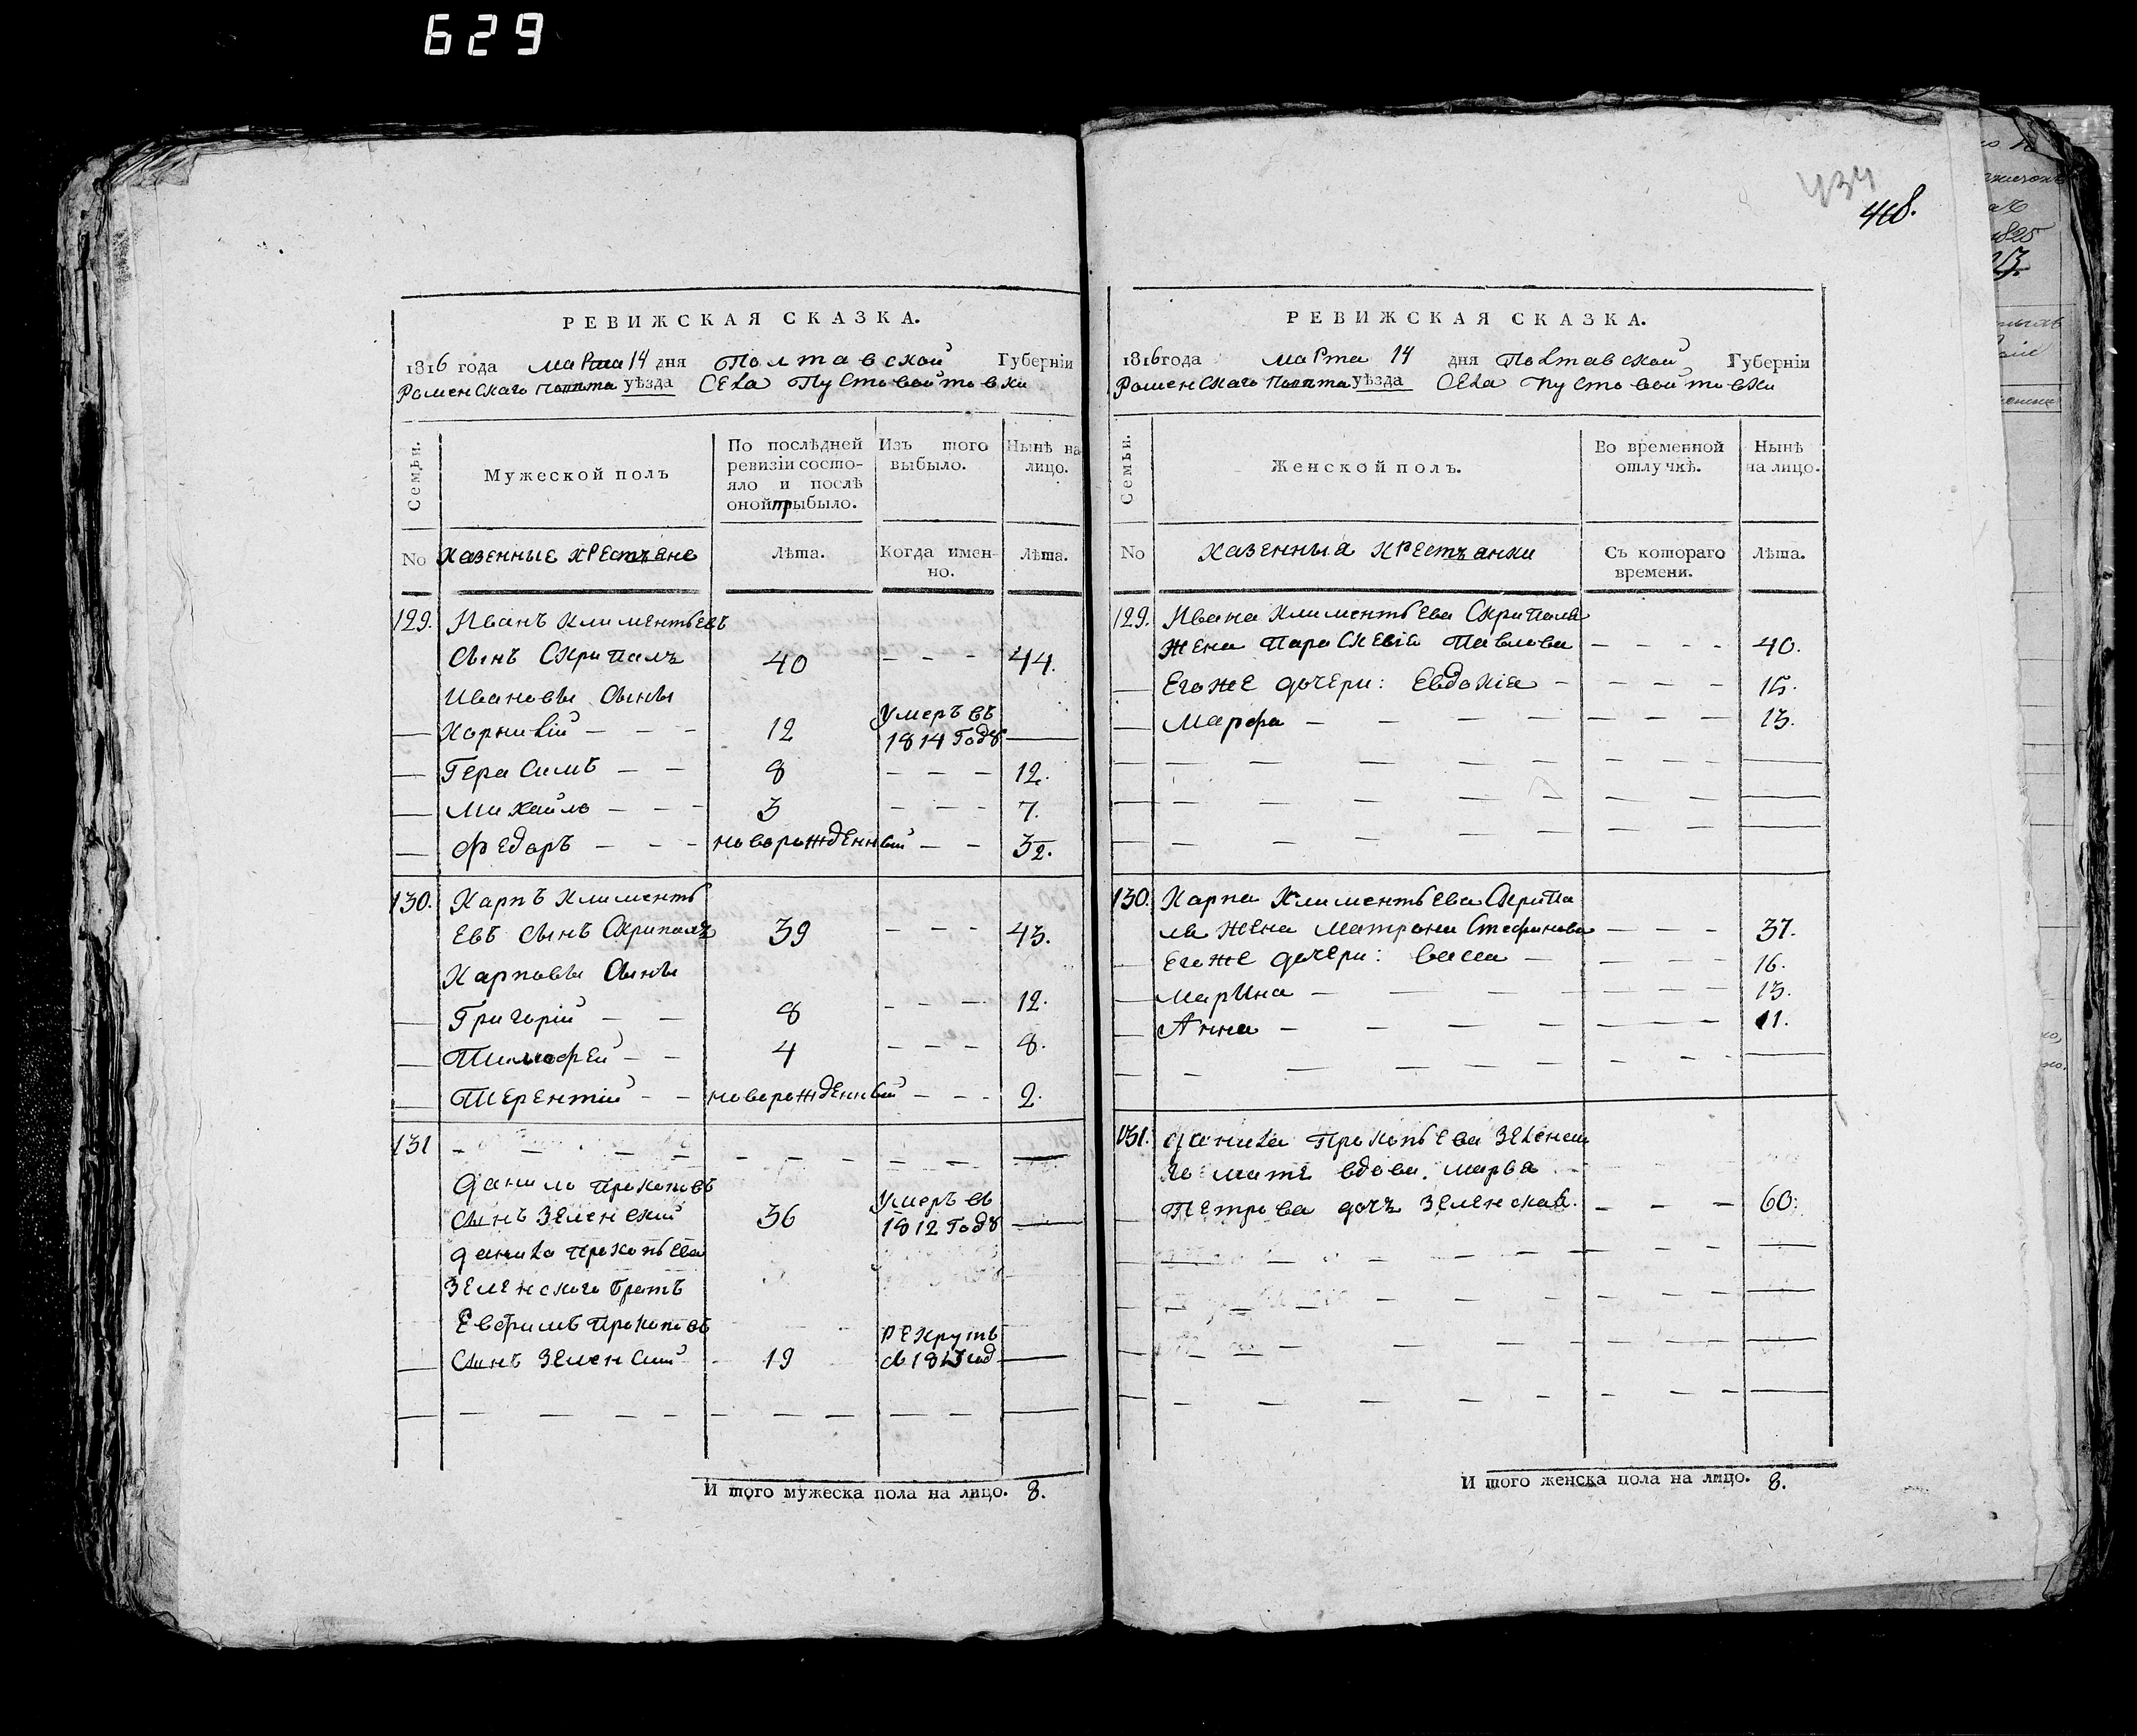 629
434
418.
РЕВИЖСКАЯ СКАЗКА.
1816 года марта 14 дня Полтавской Губерніи
Роменскаго повѣта уѣзда села Пустовойтовки
Семьи.
Мужеской полъ
По послѣдней ревизіи состояло и послѣ оной прибыло.
Изъ того выбыло.
Нынѣ на лицо.
No Казенные крестъяне Лѣта. Когда именно. Лѣта.
129. Иванъ Климентьевъ
сынъ Скрипаль 40 - - - 44.
Ивановы сыны
Корнилій - - - 12 Умеръ въ 1814 годѣ
Герасимъ - - 8 - - - 12.
Михайло - - - 3 - - - 7.
Федоръ - - - новорожденный - - 3½.
130. Карпъ Климентьевъ сынъ Скрипаль 39 - - - 43.
Карповы сыны
Григорій - - 8 - - - 12.
Тимофей - - 4 - - - 8.
Терентій - - новорожденный - - - 2.
131 - - - - - - - - -
Данило Прокопьевъ
сынъ Зеленский 36 Умеръ въ 1812 годѣ
Данила Прокопьева
Зеленского братъ
Евфимъ Прокопьевъ
сынъ Зеленский - 19 рекрутъ
И того мужеска пола на лицо. 8.
РЕВИЖСКАЯ СКАЗКА.
1816 года марта 14 дня Полтавской Губерніи
Роменскаго повѣта уѣзда села Пустовойтовки
Семьи.
Женской полъ.
Во временной отлучкѣ.
Нынѣ на лицо.
No Казенныя крестъянки Съ котораго времени. Лѣта.
129. Ивана Климентьева Скрипаля
жена Параскевія Павлова - - - - 40.
Его же дочери: Евдокія - - - - 15.
Марфа - - - - - - - - 13.
130. Карпа Климентьева Скрипа
ля жена Матрона Стефанова - - - 37.
Его же дочери: Васса - - - - 16.
Марина - - - - - - - 13.
Анна - - - - - - - 11.
131. Данила Прокопьева Зеленског
го мать вдова Марья
Петрова дочь Зеленская. - - - 60.
И того женска пола на лицо. 8.